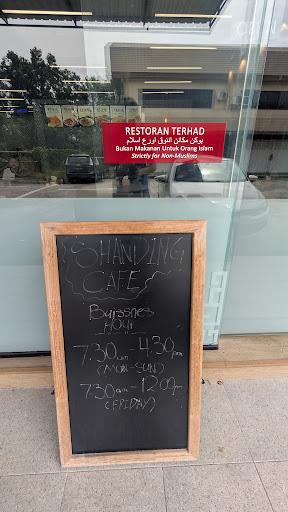 RESTORAN TERHAD
بوكن مكانن اونتوق اورڠ اسلام
Bukan Makanan Untuk Orang Islam
Strictly for Non-Muslims
SHANDING
CAFE
Buissnes
HOUR
7.30am 4.30pm
(MON-SUN)
7.30am - 12.00pm
(FRIDAY)